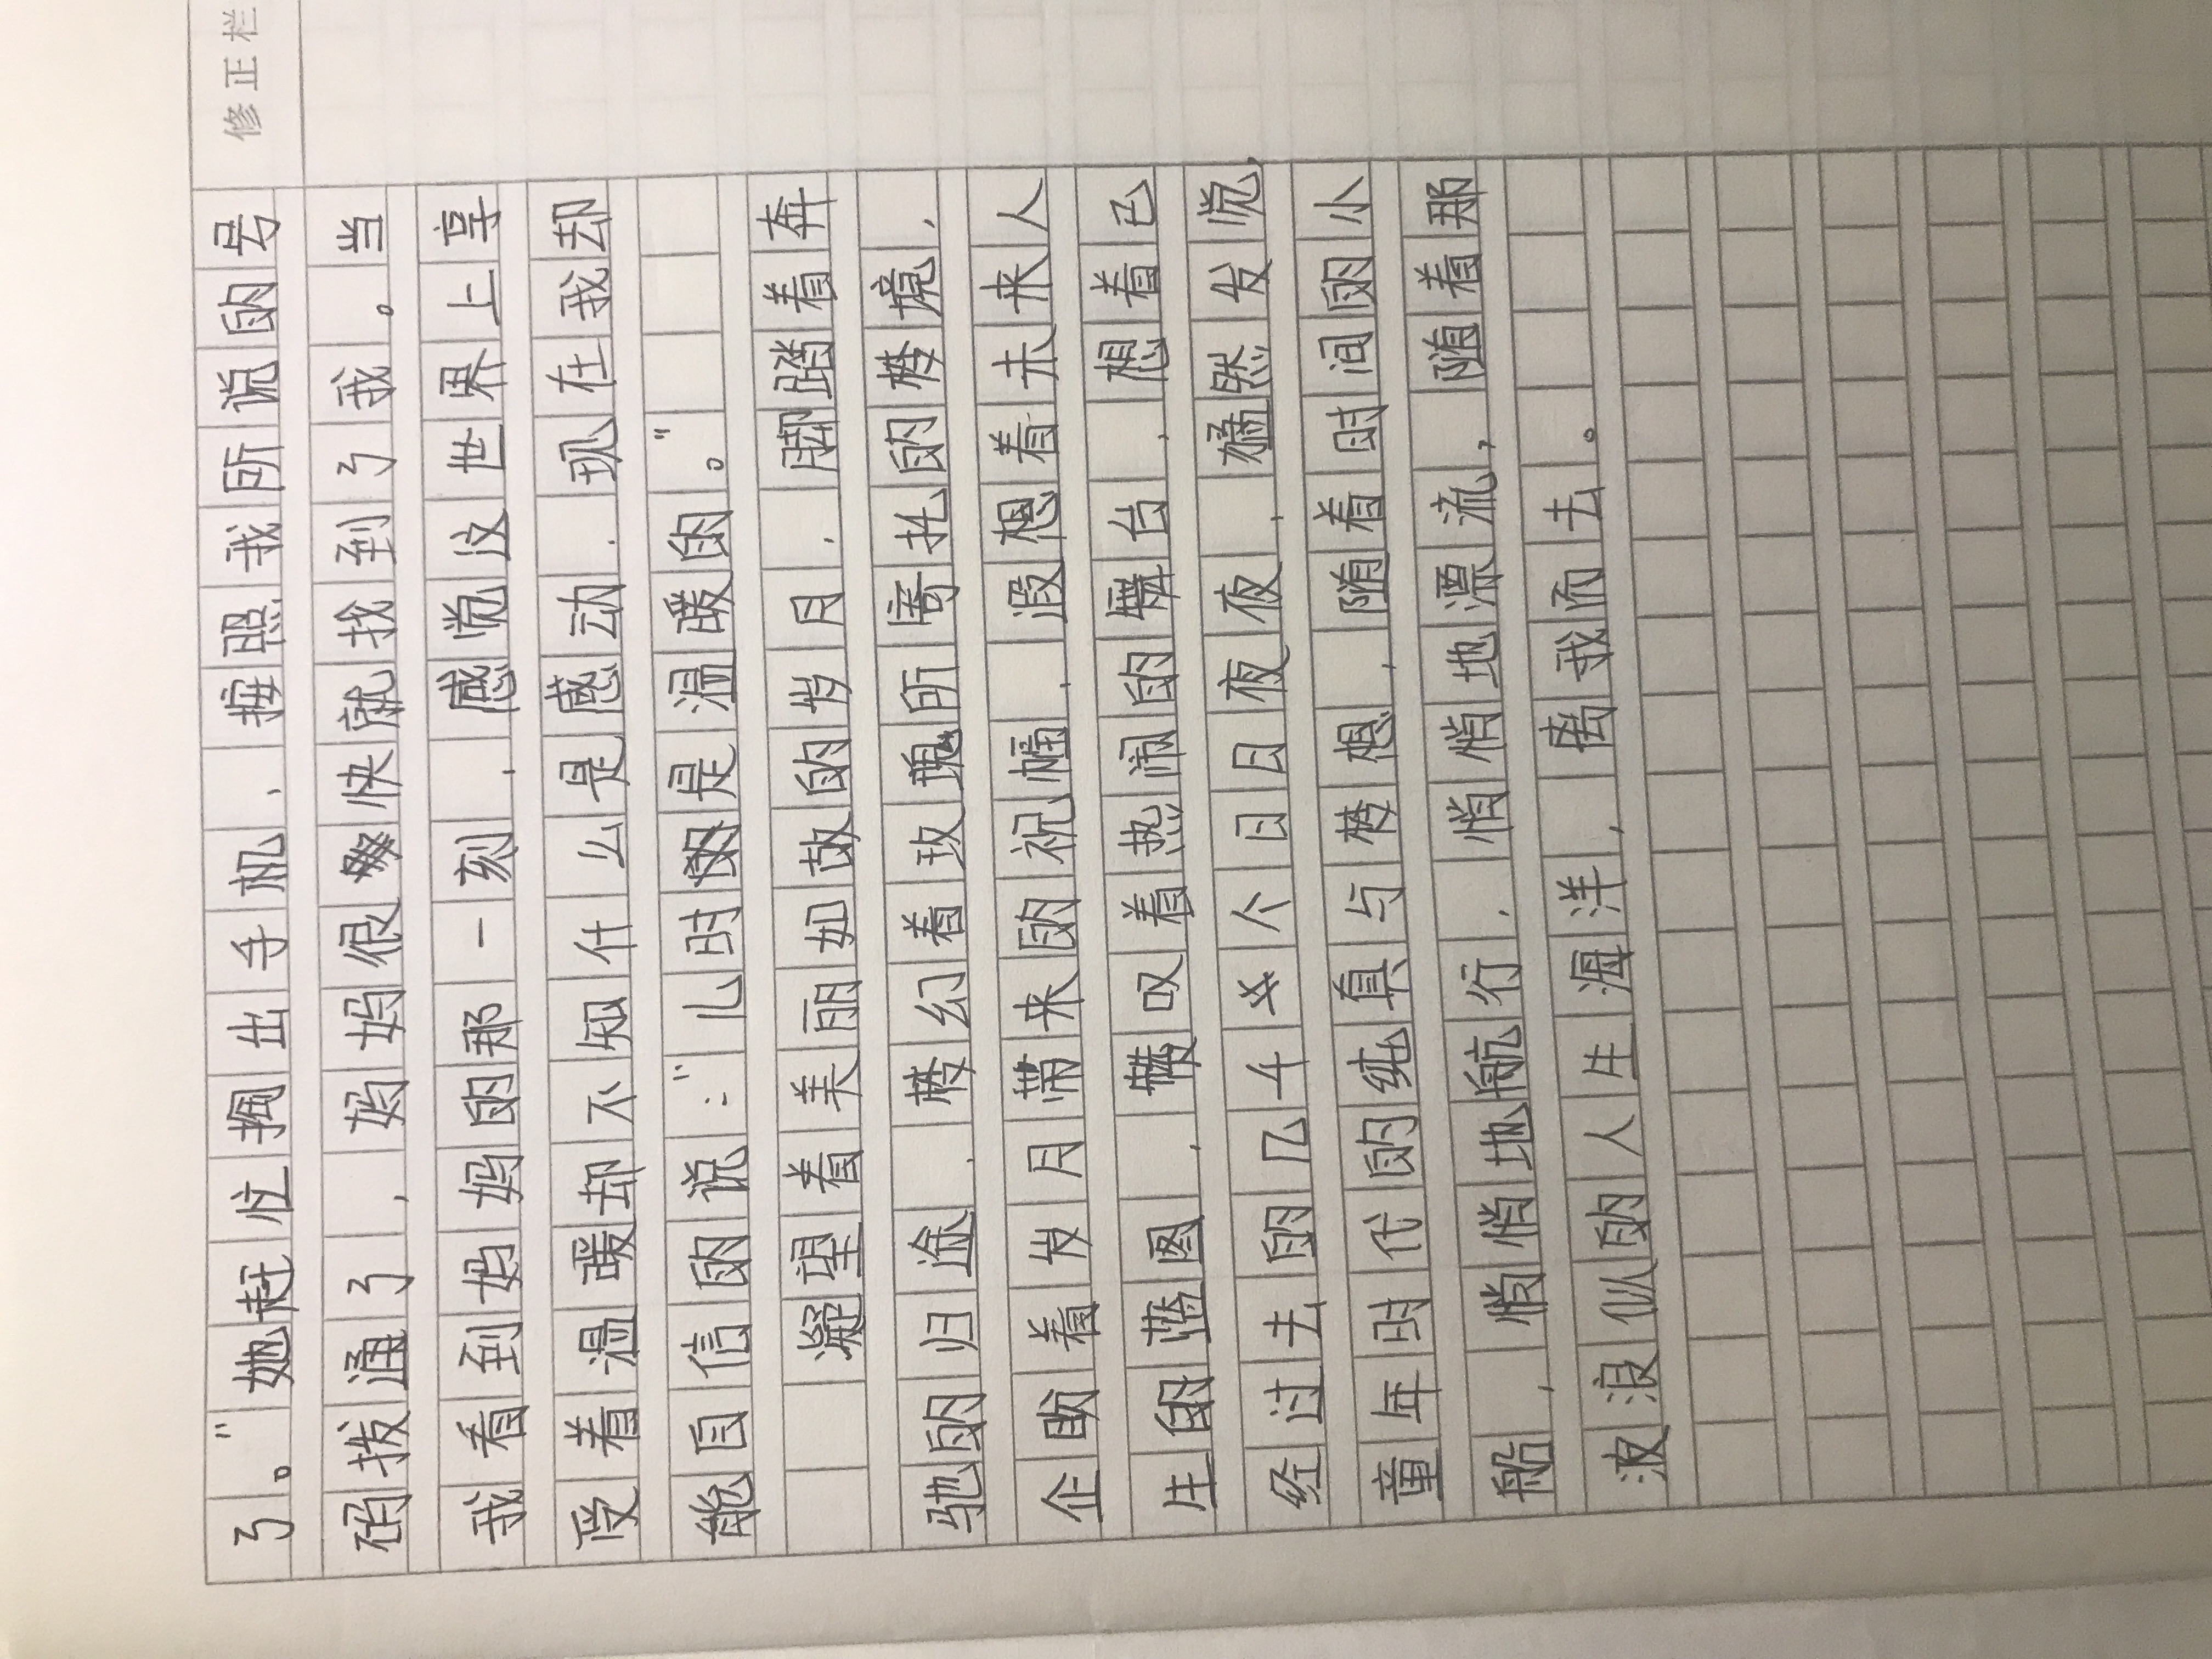 修正栏
了。”她赶忙掏出手机，按照我所说的号
码拨通了，妈妈很快就找到了我。当
我看到妈妈的那一刻，感觉这世界上享
受着温暖却不知什么是感动，现在我却
能自信的说：“儿时的是温暖的。”
凝望着美丽如故的岁月，脚踏着奔
驰的归途，梦幻着玫瑰所寄托的梦境，
企盼着岁月带来的祝幅，遐想着未来人
生的蓝图，赞叹着热闹的舞台，想着已
经过去的几千多个日日夜夜，蓦然发觉，
童年时代的纯真与梦想，随着时间的小
船，悄悄地航行，悄悄地漂流，随着那
波浪似的人生海洋，离我而去。